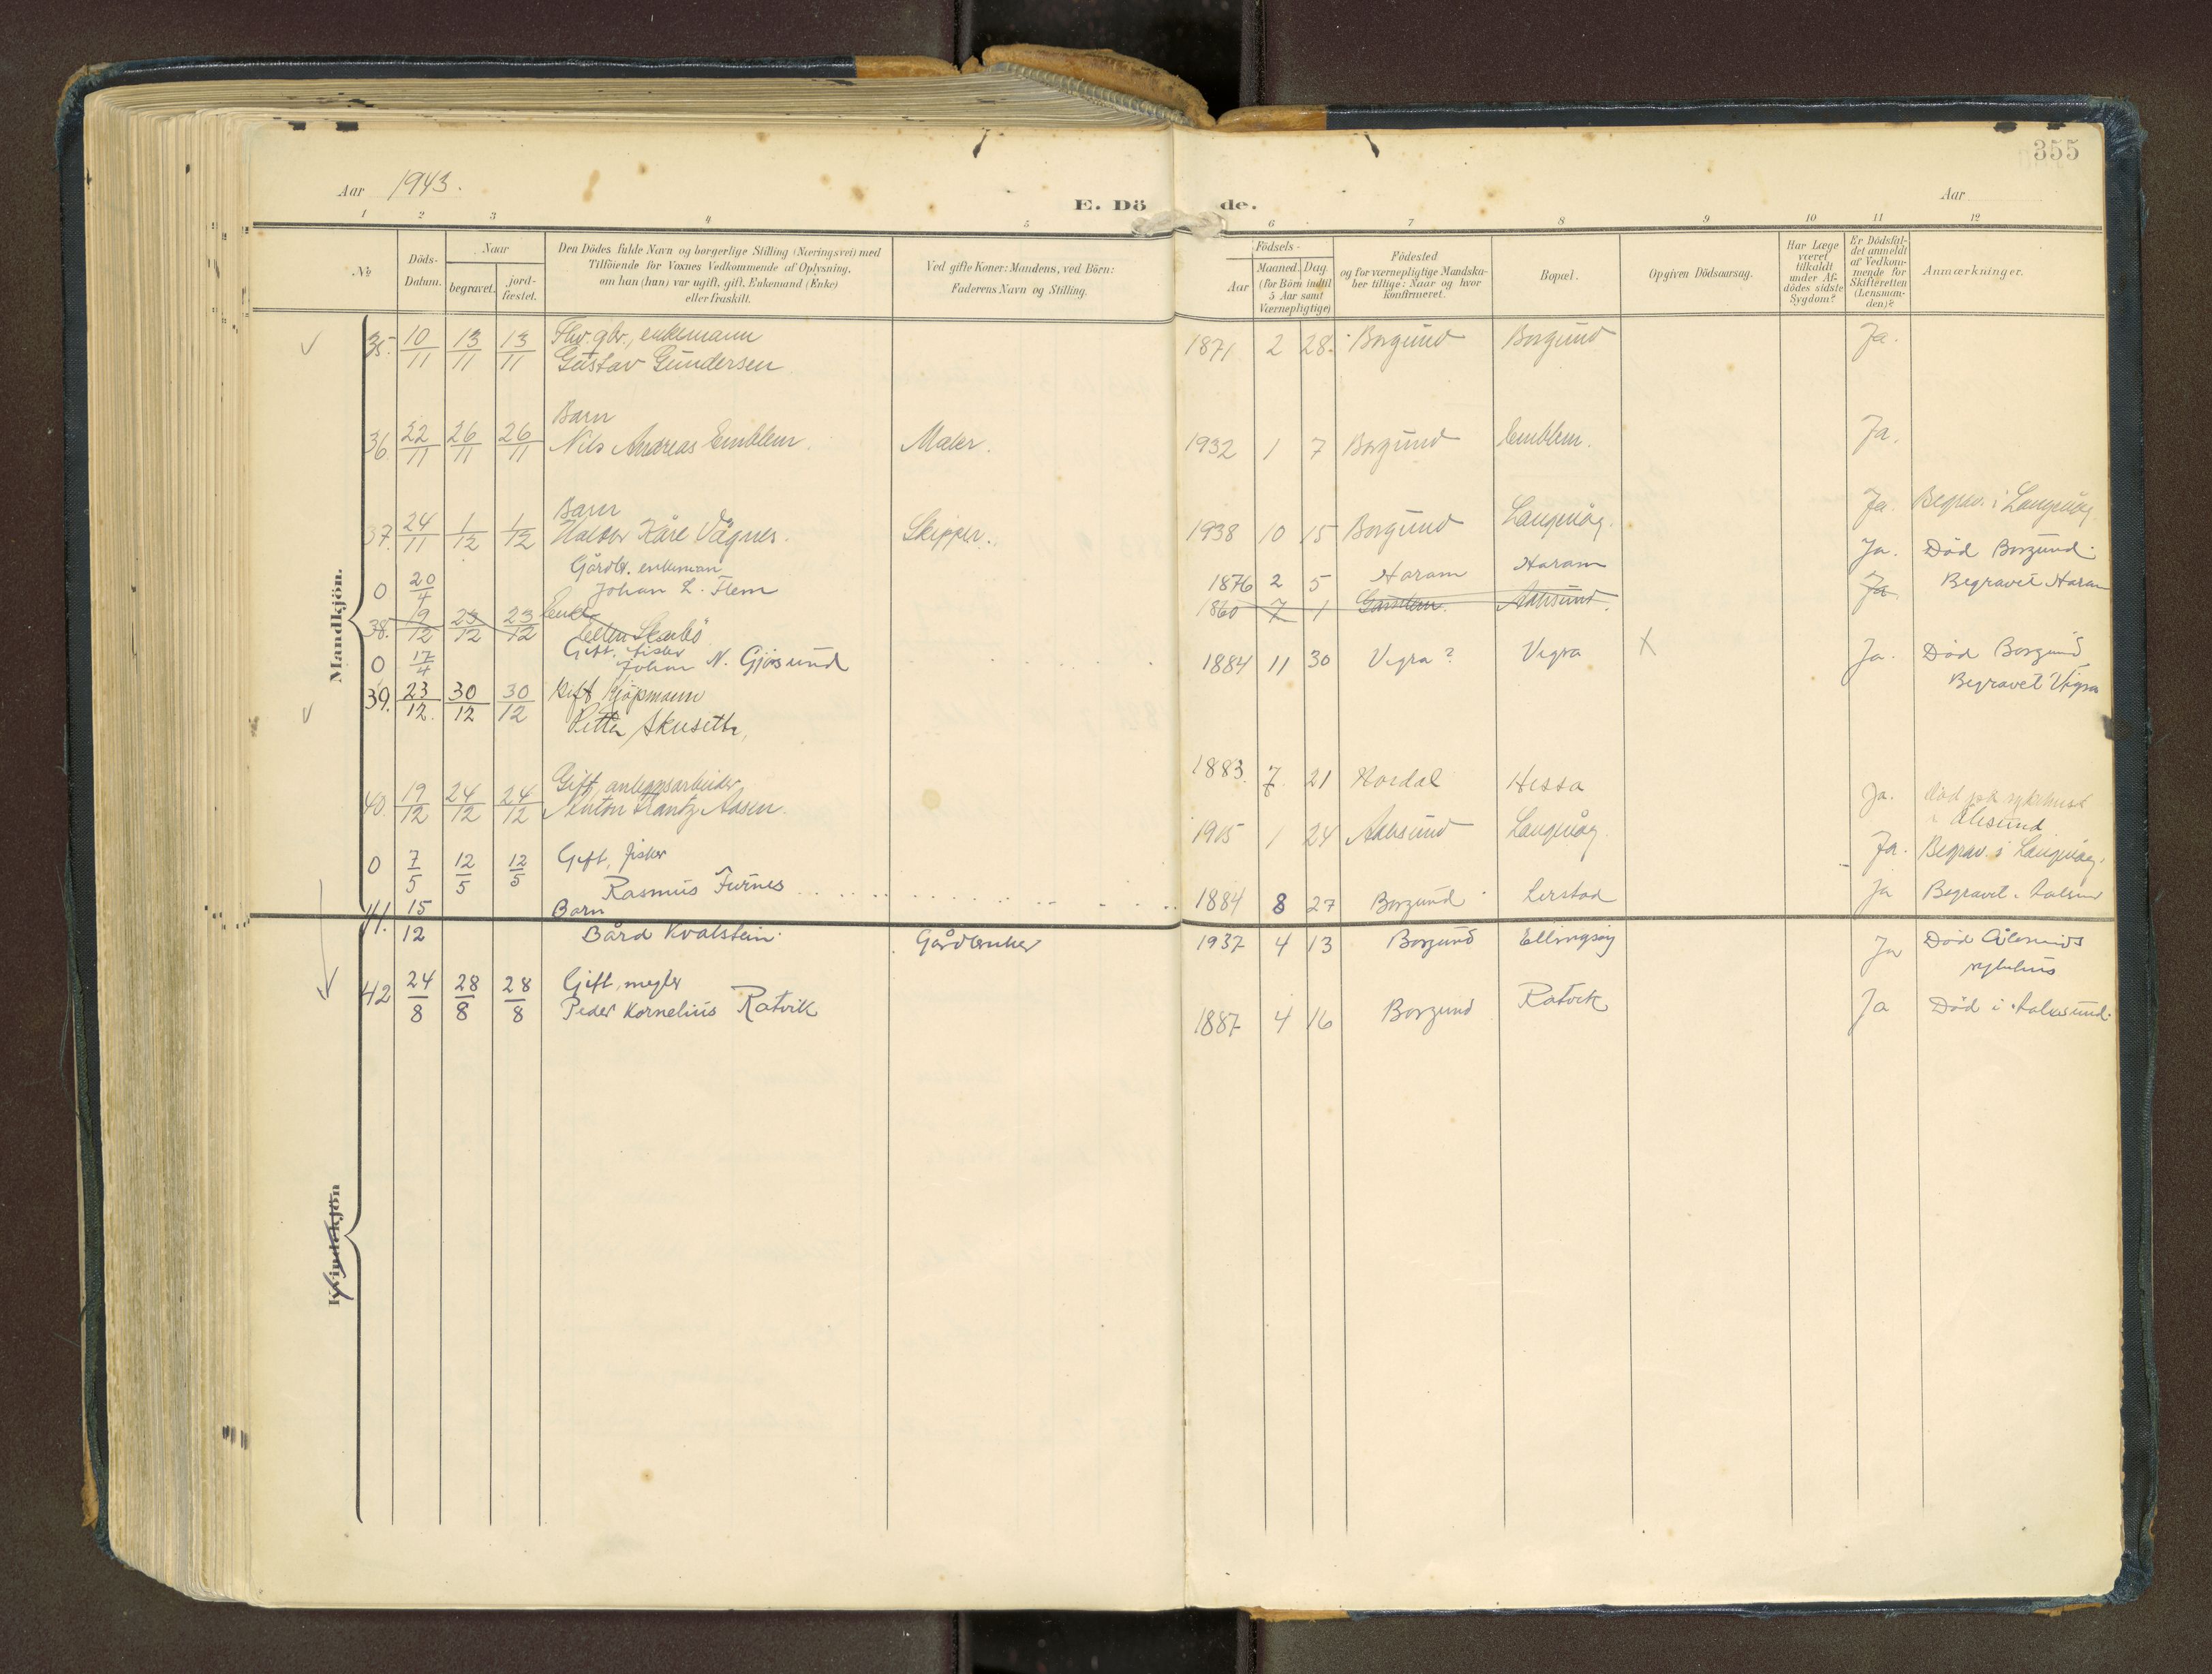 355
Aar 1943.
Aar
E. Döde.
1 2 3 4 5 6 7 8 9 10 11 12
№
Döds-Datum.
Naar
begravet.
jordfæstet.
Den Dödes fulde Navn og borgerlige Stilling (Næringsvei) med
Tilföiende for Voxnes Vedkommende af Oplysning,
om han (hun) var ugift, gift, Enkemand (Enke)
eller fraskilt.
Ved gifte Koner: Mandens, ved Börn:
Faderens Navn og Stilling.
Födsels-
Aar
Maaned. Dag.
(for Börn indtil
5 Aar samt
Værnepligtige)
Födested
og for værnepligtige Mandska-
ber tillige: Naar og hvor
konfirmeret.
Bopæl.
Opgiven Dödsaarsag.
Har Læge
været
tilkaldt
under Af-
dödes sidste
Sygdom?
Er Dödsfal-
det anmeldt
af Vedkom-
mende for
Skifteretten
(Lensman-
den)?
Anmærkninger.
Mandkjön.
35. 10/11 13/11 13/11 Fhv. gbr., enkemann
Gustav Gundersen 1871 2 28. Borgund Borgund Ja.
36 22/11 26/11 26/11 Barn
Nils Andreas Emblem Maler. 1932 1 7 Borgund Emblem. Ja.
37. 24/11 1/12 1/12 Barn
Kåre Vågnes. Skipper. 1938 10 15 Borgund Langevåg. Ja. Begrav. i Langevåg
0 20/4 Gårdbr. enkeman
Johan L. Flem 1876 2 5 Haram Haram Ja. Död Borgund.
Begravet Haram
38. 19/12 23/12 23/12 Enke
Skarbö 1860 7 1 Aalesund. Ja
0 17/4 Gift, fisker
Johan N. Gjösund 1884 11 30 Vigra? Vigra X Ja. Död Borgund
Begravet Vigra
39. 23/12. 30/12 30/12 Gift Kjöpmann
Petter Skuseth, 1883. 7 21 Nordal Hessa Ja. död på sykehuset
i Ålesund
40. 19/12 24/12 24/12 Gift, anleggsarbeider
Anton Frantz Aasen. 1905 1 24 Aalesund Langevåg. Ja. Begrav. i Langevåg.
0 7/5 12/5 12/5 Gift, fisker
Rasmus Furnes 1884 8 27 Borgund Lerstad Ja Begravet i Aalesund
41. 15/12 Barn
Bård Kvalstein. Gårdbruker 1937 4 13 Borgund Ellingsöy Ja Död Ålesunds
sykehus
42 24/8 28/8 28/8 Gift, megler
Peder Kornelius Ratvik 1887 4 16 Borgund Ratvik Ja Död i Aalesund.
Kvindekjön